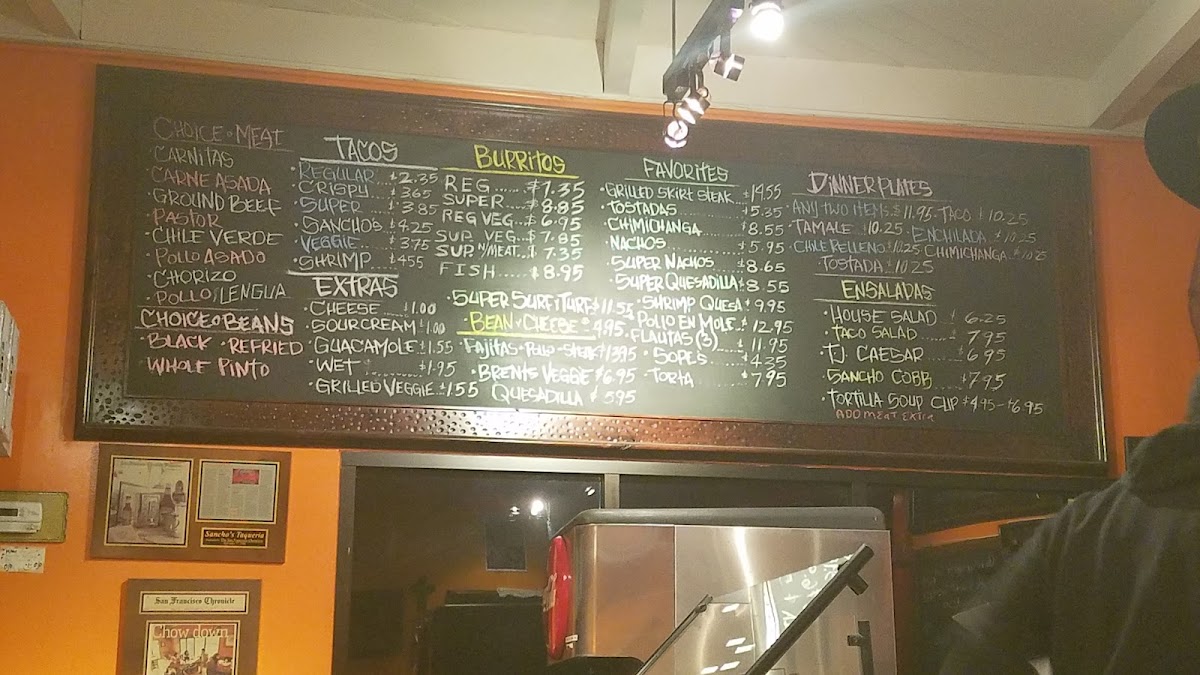 CHOICE OF MEAT
CARNITAS
CARNE ASADA
• GROUND BEEF
• PASTOR
• CHILE VERDE
• POLLO ASADO
• CHORIZO
• POLLO/LENGUA
CHOICE OF BEANS
• BLACK • REFRIED
• WHOLE PINTO
TACOS
• REGULAR $2.35
• CRISPY $3.65
• SUPER $3.85
• SANCHOS $4.25
• VEGGIE $3.75
• SHRIMP $4.55
EXTRAS
• CHEESE $1.00
• SOUR CREAM $1.00
• GUACAMOLE $1.55
• WET $1.95
• GRILLED VEGGIE $1.55
BURRITOS
REG ...... $7.35
SUPER ...... $8.85
REG VEG ... $6.95
SUP. VEG ... $7.85
SUP. W/MEAT. $7.35
FISH ...... $8.95
• SUPER SURF/TURF $11.55
• BEAN & CHEESE 4.95
• FAJITAS • POLLO • STEAK $13.95
• BRENTS VEGGIE $6.95
QUESADILLA $5.95
FAVORITES
• GRILLED SKIRT STEAK $14.55
• TOSTADAS $5.35
• CHIMICHANGA $8.55
• NACHOS $5.95
• SUPER NACHOS $8.65
• SUPER QUESADILLA $8.55
• SHRIMP QUESA $9.95
• POLLO EN MOLE $12.95
• FLAUTAS (3) $11.95
• SOPES $4.35
• TORTA $7.95
DINNER PLATES
• ANY TWO ITEMS $11.95 • TACO $10.25
• TAMALE $10.25 • ENCHILADA $10.25
• CHILE RELLENO $10.25 CHIMICHANGA $10.25
• TOSTADA $10.25
ENSALADAS
• HOUSE SALAD $6.25
• TACO SALAD $7.95
• TJ CAESAR $6.95
• SANCHO COBB $7.95
• TORTILLA SOUP CUP $4.95-$6.95
ADD MEAT EXTRA
Sancho's Taqueria
San Francisco Chronicle
Chow down